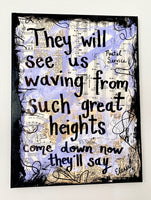 They will
see us
Postal
Service
waving from
such great
heights
come down now
they'll say